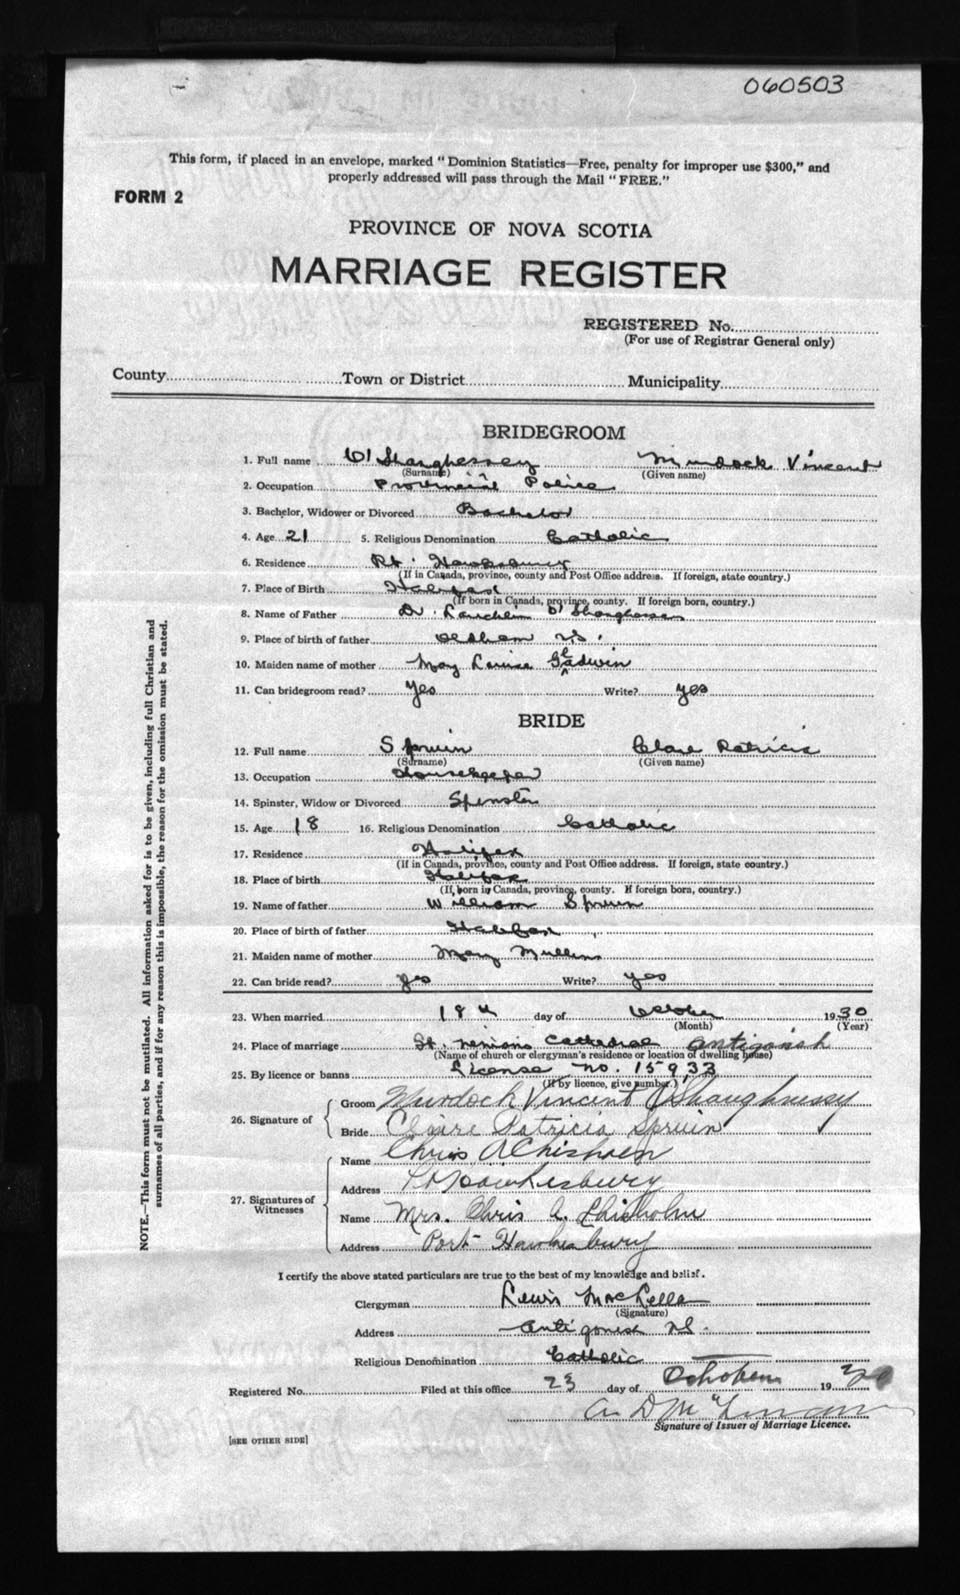 060503
This form, if placed in an envelope, marked "Dominion Statistics—Free, penalty for improper use $300," and
properly addressed will pass through the Mail "FREE."
FORM 2
PROVINCE OF NOVA SCOTIA
MARRIAGE REGISTER
REGISTERED No.
(For use of Registrar General only)
County Town or District Municipality
BRIDEGROOM
1. Full name O'Shaughessey Murdock Vincent
(Surname) (Given name)
2. Occupation Provincial Police
3. Bachelor, Widower or Divorced Bachelor
4. Age 21 5. Religious Denomination Catholic
6. Residence Pt. Hawksbury
(If in Canada, province, county and Post Office address. If foreign, state country.)
7. Place of Birth Halifax
(If born in Canada, province, county. If foreign born, country.)
8. Name of Father Dr. Lauchlin O'Shaughessey
9. Place of birth of father Oldham N.S.
10. Maiden name of mother May Louise Gladwin
11. Can bridegroom read? Yes Write? Yes
BRIDE
12. Full name Spruin Clare Patricia
(Surname) (Given name)
13. Occupation Housekeeper
14. Spinster, Widow or Divorced Spinster
15. Age 18 16. Religious Denomination Catholic
17. Residence Halifax
(If in Canada, province, county and Post Office address. If foreign, state country.)
18. Place of birth Halifax
(If born in Canada, province, county. If foreign born, country.)
19. Name of father William Spruin
20. Place of birth of father Halifax
21. Maiden name of mother Mary Mullins
22. Can bride read? Yes Write? Yes
23. When married 18th day of October 1930
(Month) (Year)
24. Place of marriage St. Ninians Cathedral Antigonish
(Name of church or clergyman's residence or location of dwelling house)
25. By licence or banns License no. 15933
(If by licence, give number.)
26. Signature of
Groom Murdock Vincent O'Shaughnessy
Bride Claire Patricia Spruin
27. Signatures of Witnesses
Name Chris A Chisholm
Address Pt Hawkesbury
Name Mrs. Chris A. Chisholm
Address Port Hawkesbury
I certify the above stated particulars are true to the best of my knowledge and belief.
Clergyman Lewis MacLellan
(Signature)
Address Antigonish N.S.
Religious Denomination Catholic
Registered No. Filed at this office 23 day of October 1930
Signature of Issuer of Marriage Licence.
[SEE OTHER SIDE]
NOTE.—This form must not be mutilated. All information asked for is to be given, including full Christian and
surnames of all parties, and if for any reason this is impossible, the reason for the omission must be stated.